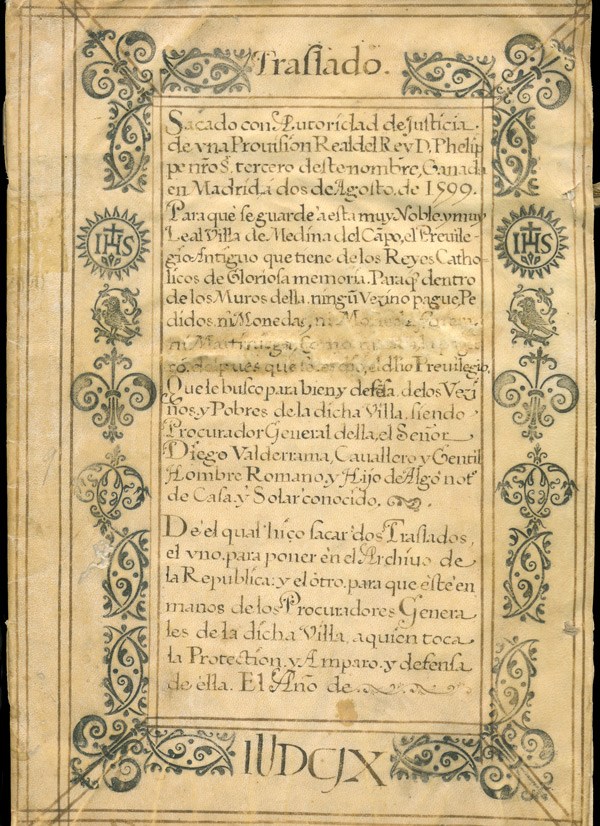 Traslado.
Sacado con Autoridad de Justicia
de vna Prouision Real del Rey D. Phelip
pe nr̃o S. tercero deste nombre, Ganada
en Madrid á dos de Agosto, de 1599.
Para que se guarde a esta muy Noble, y muy
Leal Villa de Medina del Cãpo, el Preuile-
gio Antiguo que tiene de los Reyes Catho-
licos de Gloriosa memoria. Para q̃ dentro
de los Muros della, ningũ Vezino pague, Pe
didos, ni Monedas, ni
ni Martiniega,
despues que el dho Preuilegio,
Que le busco para bien y defẽsa, de los Vezi
ños, y Pobres de la dicha Villa, siendo
Procurador General della, el Señor
Diego Valderrama, Cauallero y Gentil
Hombre Romano, y Hijo de Algo not.º
de Casa, y Solar conocido,
De el qual hiço sacar dos Traslados,
el vno, para poner en el Archiuo de
la Republica: y el otro, para que este en
manos de los Procuradores Genera
les de la dicha Villa, a quien toca
la Protection, y Amparo, y defensa
de ella. El Año de
IHS
IHS
IUDCJX